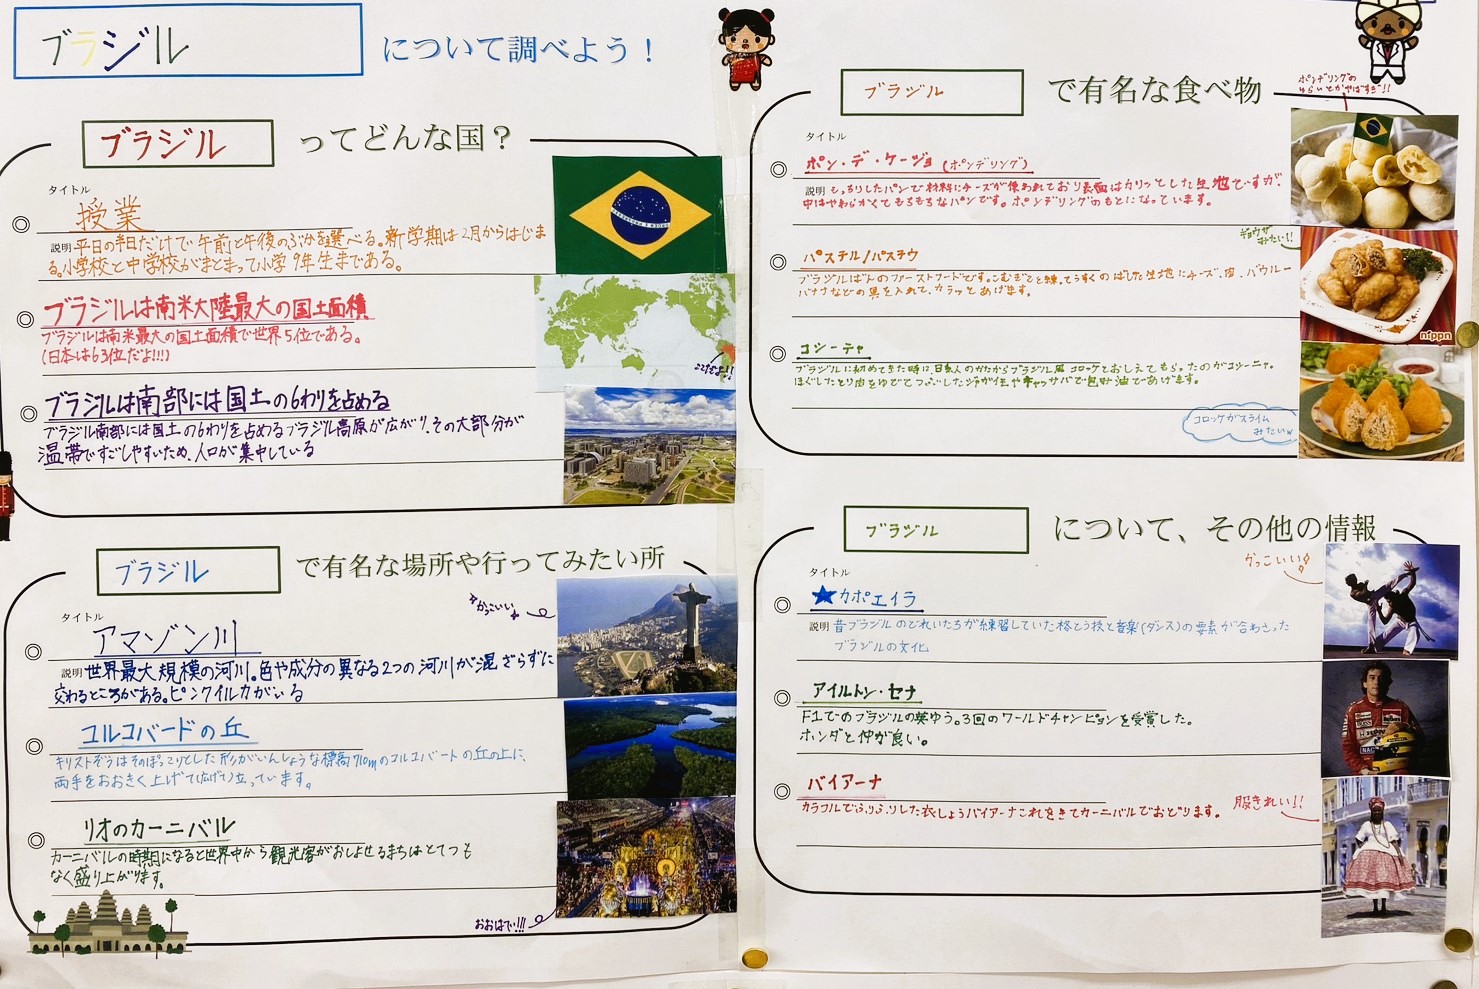 ブラジル について調べよう！
ブラジル ってどんな国？
タイトル
授業
説明 平日の半日だけで午前と午後のぶかを選べる。新学期は2月からはじま
る。小学校と中学校がまとまって小学9年生まである。
ブラジルは南米大陸最大の国土面積
ブラジルは南米最大の国土面積で世界5位である。
(日本は63位だよ!!!)
ここだよ!!
ブラジルは南部には国土の6わりを占める
ブラジル南部には国土の6わりを占めるブラジル高原が広がり、その大部分が
温帯ですごしやすいため、人口が集中している
ブラジル で有名な場所や行ってみたい所
かっこいい
タイトル
アマゾン川
説明 世界最大規模の河川。色や成分の異なる2つの河川が混ざらずに
交わるところがある。ピンクイルカがいる
コルコバードの丘
キリストぞうはそのぽっこりとした形がいんしょうな標高710mのコルコバードの丘の上に、
両手をおおきく上げて(広げて)立っています。
リオのカーニバル
カーニバルの時期になると世界中から観光客がおしよせるまちはとても
なく盛り上がります。
おおはでい!!!
ブラジル で有名な食べ物
ポンデリングの
タイトル
ポン・デ・ケージョ(ポンデリング)
説明 もっちりしたパンで材料にチーズが使われており表面はカリッとした生地ですが、
中はやわらかくてもちもちなパンです。ポンデリングのもとになっています。
ギョウザ
みたい!!
パステル/パスチウ
ブラジルばんのファーストフードです。こむぎこを練ってうすくのばした生地にチーズ、肉、バウルー
バナナなどの具を入れて、カラッとあげます。
nippn
コシーニャ
ブラジルに初めてきた時に、日本人のかたからブラジル風コロッケとおしえてもらったのがコシーニャ。
ほぐしたとり肉をゆでてつぶしたジャガイモやキャッサバで包み油であげます。
コロッケがスライム
みたいw
ブラジル について、その他の情報
かっこいい
タイトル
★カポエイラ
説明 昔ブラジルのどれいたちが練習していた格とう技と音楽(ダンス)の要素が合わさった
ブラジルの文化
アイルトン・セナ
F1でのブラジルの英ゆう。3回のワールドチャンピョンを受賞した。
ホンダと仲が良い。
バイアーナ
カラフルでふりふりした衣しょうバイアーナこれをきてカーニバルでおどります。
服きれい!!